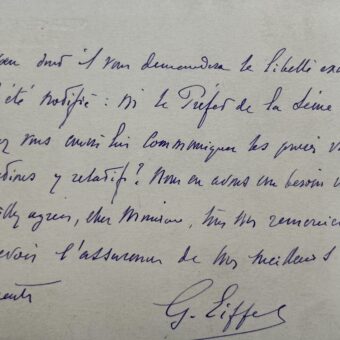 dont il vous demandera le libellé exa
été modifié : si le Préfet de la Seine
vous aussi lui communiquer les
y relatifs? Nous en avons un besoin
agréer, cher Monsieur, tous nos remercie
evoir l'assurance de nos meilleurs
ments
G. Eiffel